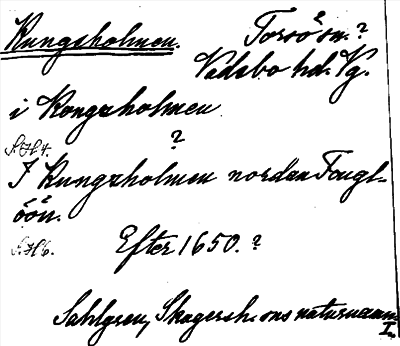 Kungsholmen. Torsö sn.?
Vadsbo hd. Vg.
i Kongzholmen
S. 764.
?
I Kungzholmen nordan Fougl-
öön.
S. 766.
Efter 1650.?
Sahlgren, Skagersh. ons naturnamn
I.